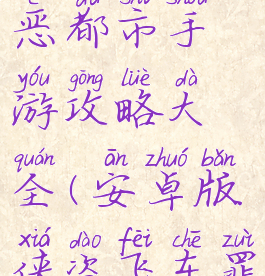 恶都市手
yóu gōng lüè dà
游攻略大
quán ān zhuó bǎn
全(安卓版
xiá dào fēi chē zuì
侠盗飞车罪